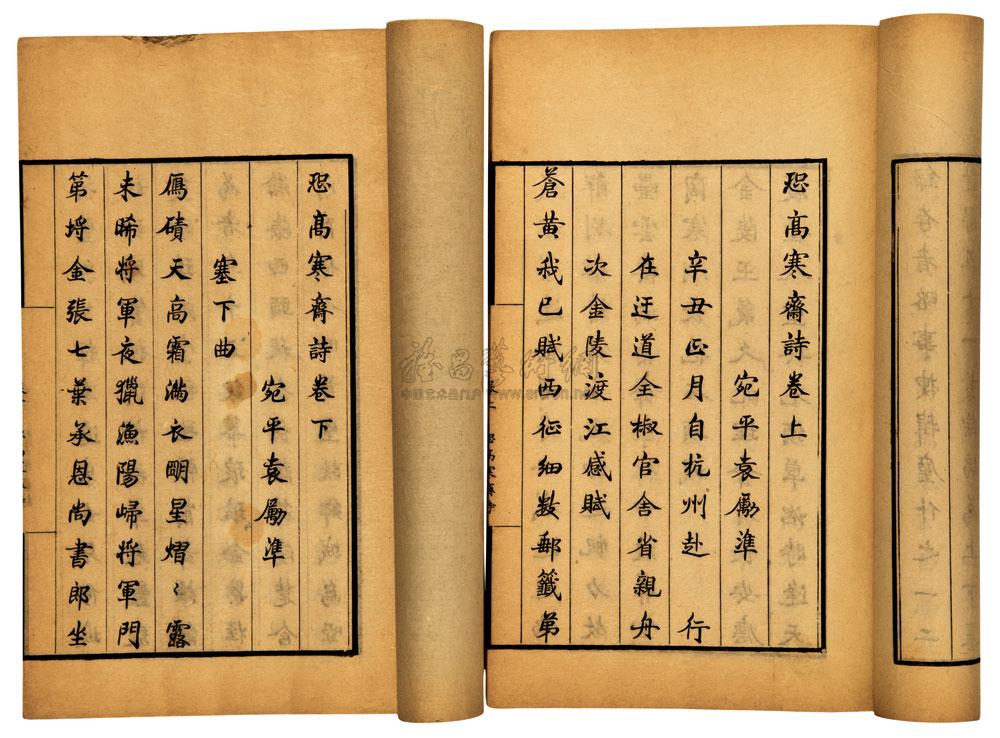 恐高寒齋詩卷上
宛平袁勵準
辛丑正月自杭州赴　行
在迂道全椒官舍省親舟
次金陵渡江感賦
蒼黃我已賦西征細數郵籤第
恐高寒齋詩卷下
宛平袁勵準
塞下曲
鴈磧天高霜滿衣朙星熠〻露
未晞將軍夜獵漁陽歸將軍門
第埒金張七葉承恩尚書郎坐